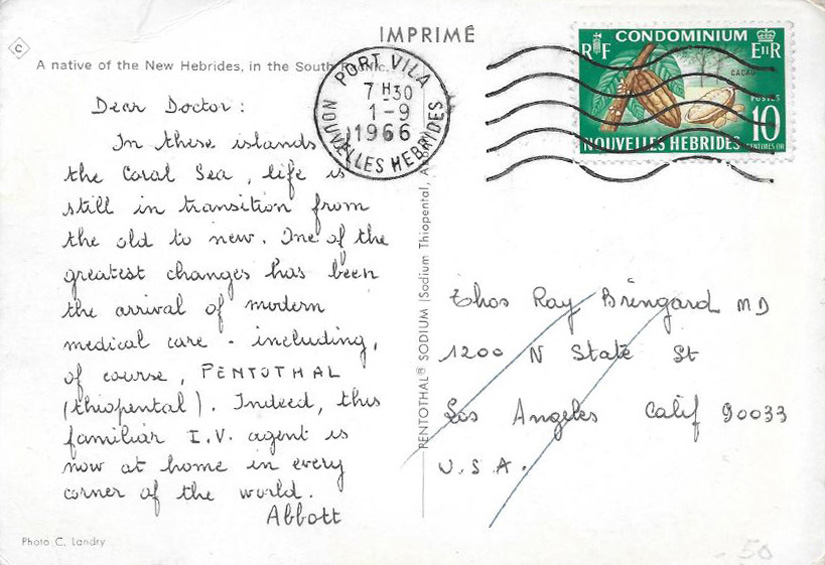 IMPRIMÉ
C
A native of the New Hebrides, in the South
PORT VILA
7 H 30
1-9
1966
NOUVELLES HEBRIDES
CONDOMINIUM
RF
EIIR
CACAO
POSTES
10
CENTIMES OR
NOUVELLES HEBRIDES
Dear Doctor :
In these islands
the Coral Sea, life is
still in transition from
the old to new. One of the
greatest changes has been
the arrival of modern
medical care - including,
of course, PENTOTHAL
(thiopental). Indeed, this
familiar I.V. agent is
now at home in every
corner of the world.
Abbott
PENTOTHAL® SODIUM (Sodium Thiopental,
Thos Ray Brengard MD
1200 N State St
Los Angeles Calif 90033
U.S.A.
Photo C. Landry
50